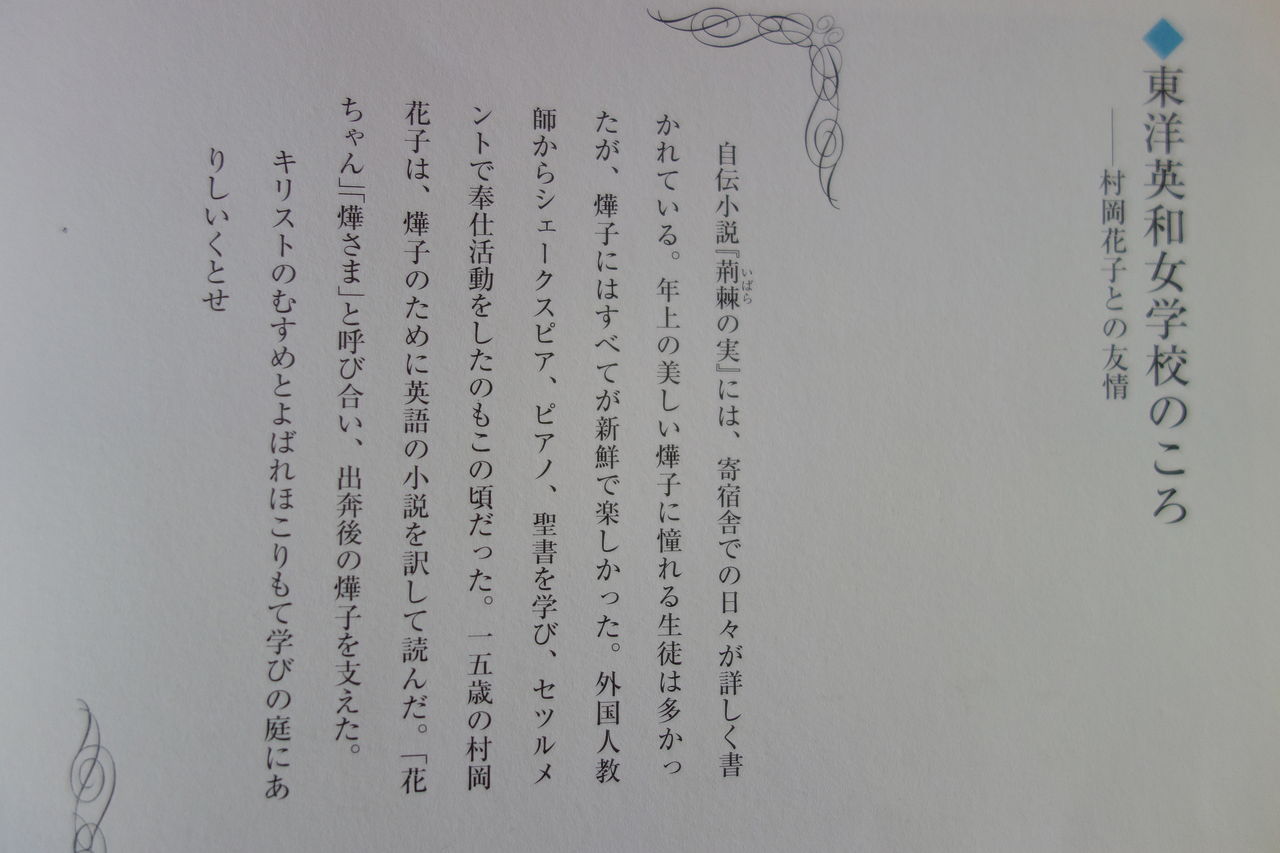 ◆東洋英和女学校のころ
――村岡花子との友情
自伝小説『荊棘の実』には、寄宿舎での日々が詳しく書
いばら
かれている。年上の美しい燁子に憧れる生徒は多かっ
たが、燁子にはすべてが新鮮で楽しかった。外国人教
師からシェークスピア、ピアノ、聖書を学び、セツルメ
ントで奉仕活動をしたのもこの頃だった。一五歳の村岡
花子は、燁子のために英語の小説を訳して読んだ。「花
ちゃん」「燁さま」と呼び合い、出奔後の燁子を支えた。
キリストのむすめとよばれほこりもて学びの庭にあ
りしいくとせ